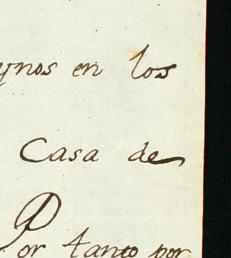 ynos en los
Casa de
Por tanto por